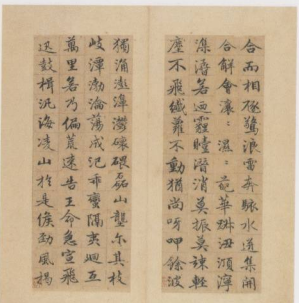 合而相磢驚浪雷奔駭水迸集開
合解會瀼〻濕〻葩華踧沑澒濘
潗㵫若乃霾曀潛消莫振莫竦輕
塵不飛纖蘿不動猶尚呀呷餘波
獨湧澎濞灪䃶碨磊山壟尓其枝
岐潭渤瀹蕩成汜乖蠻隔夷迴互
萬里若乃偏荒速告王命急宣飛
迅鼓楫汎海凌山於是候勁風揭